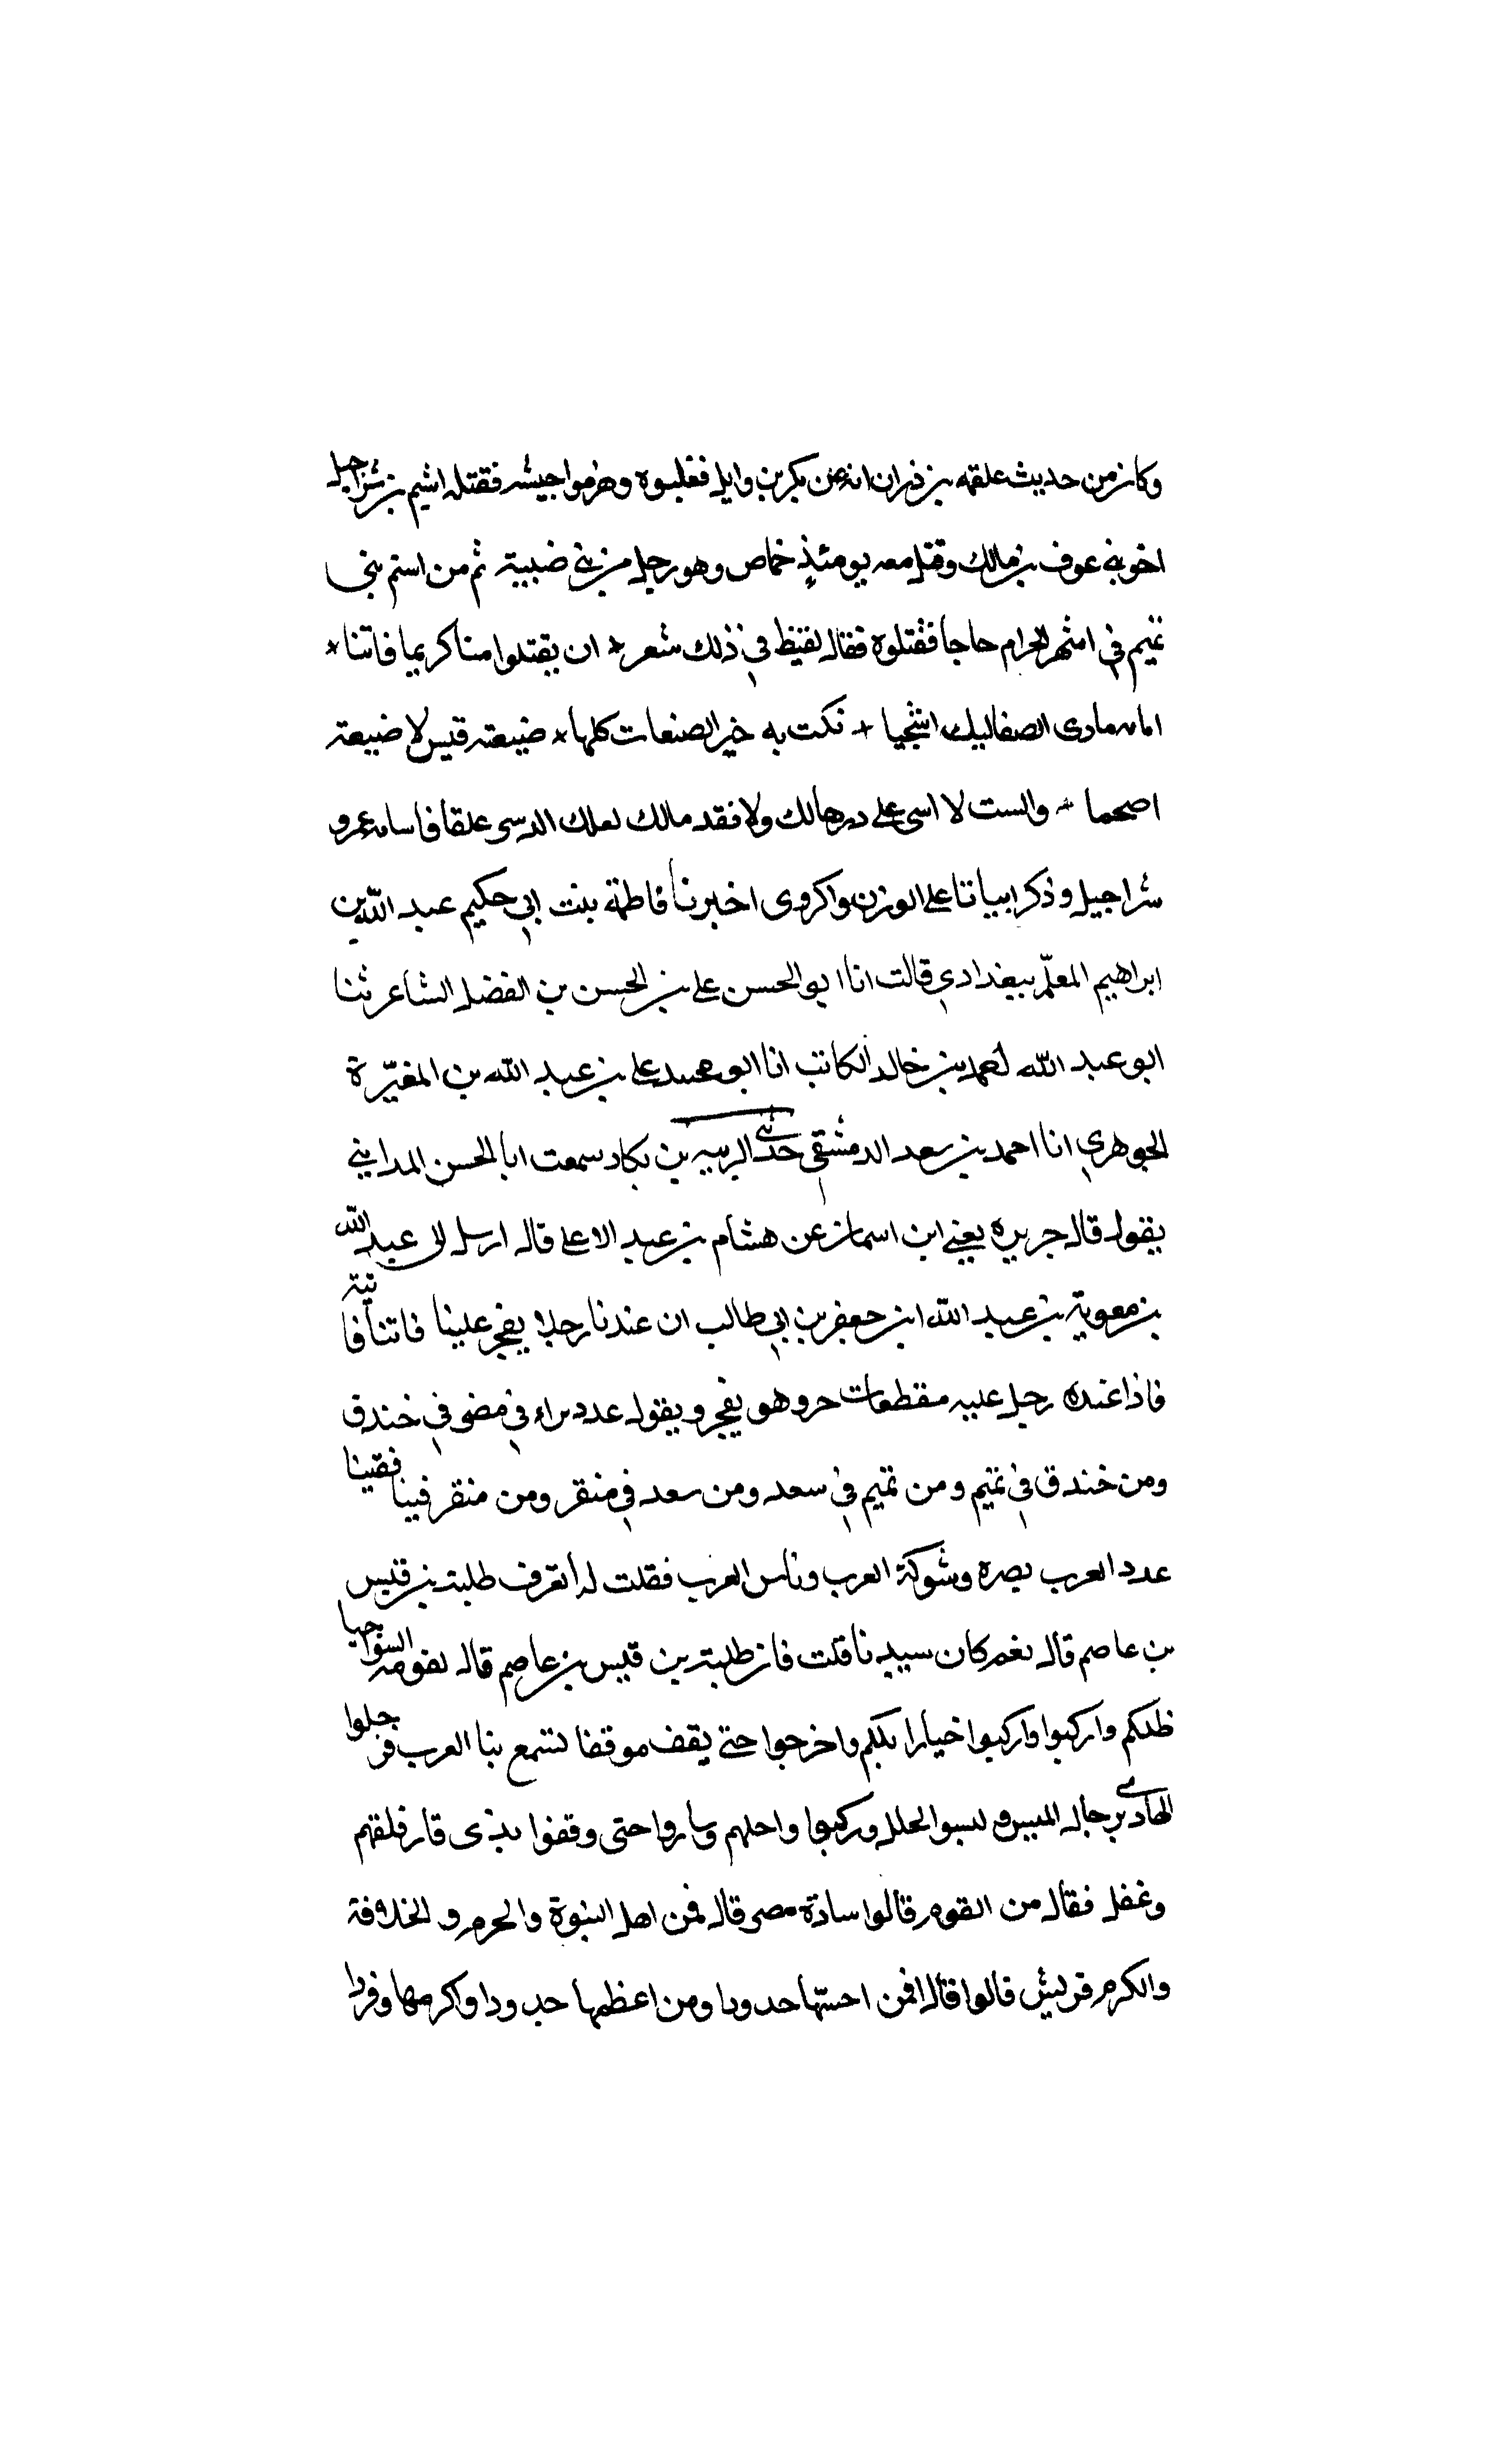 وكان من حديث علقمه بن ذران انه من بكر بن وايل فغلبوه وهزموا جيشه فقتله اشيم بن شراجيل
اخو بني عوف بن مالك وقتل معه يومئذٍ خماص وهو رجل من بني ضبيبة ثم من اسنم بني
تميم في اشهر الحرام حاجا فقتلوه فقال لقيظ في ذلك شعر * ان يقتلوا منا كريما فاتنا *
مادى الصفاليك اشجيا * نكت به خير الصنعات كلها * ضيعته قيس لا ضيعة
اصحما * والست لا اسى على درهالك ولا فقد مالك لعلك علقا عمرو
شراجيل وذكر ابياتا على الوزن واكروى اخبرنا فاطمة بنت ابي حكيم عبد الله بن
ابراهيم المعلّم ببغدادي قالت انا ابو الحسن على بن الحسن بن الفضل الشاعر ثنا
ابو عبد الله احمد بن خالد الكاتب انا ابو محمد على بن عبد الله بن المغيّرة
الجوهري انا احمد بن سعد الدمشقي حدثني الزبير بن بكار سمعت ابا الحسن المدايني
يقول قال جريره يعني ابن اسمان عن هشام بن عبد الاعلى قال ارسل الى عبد الله
بن معوية بن عبد الله ابن جعفر بن ابي طالب ان عندنا رجلا يفجر علينا فاتنا فاتيته
فاذا عنده رجل عليه مقطعات حر وهو يفجر ويقول عدد براء في مضى في خندق
ومن خندق في تميم ومن تميم في سعد ومن سعد في منقر ومن منقر فينا ففينا
عدد العرب بصره وشوكة العرب وناس العرب فقلت له اتعرف طلبة بن قيس
بن عاصم قال نعم كان سيدنا قلت فان طلبته بن قيس بن عاصم قال لقومه السوا جيا
ظلكم واركبوا واركبوا خيارا بلكم واخرجوا حتى يقف موقفا لتسمع بنا العرب فرجلوا
الهادي برجاله الميس و لبسوا الحلل وركبوا واحلهم وساروا حتى وقفوا بذى قار فلقهم
وغفل فقال من القوم قالوا سادة مصر قال فمن اهل النبوة والحرم و الخلافة
والكرم قريش قالوا قال افمن احسنها حدودا ومن اعظمها حدودا واكرمها وفردا